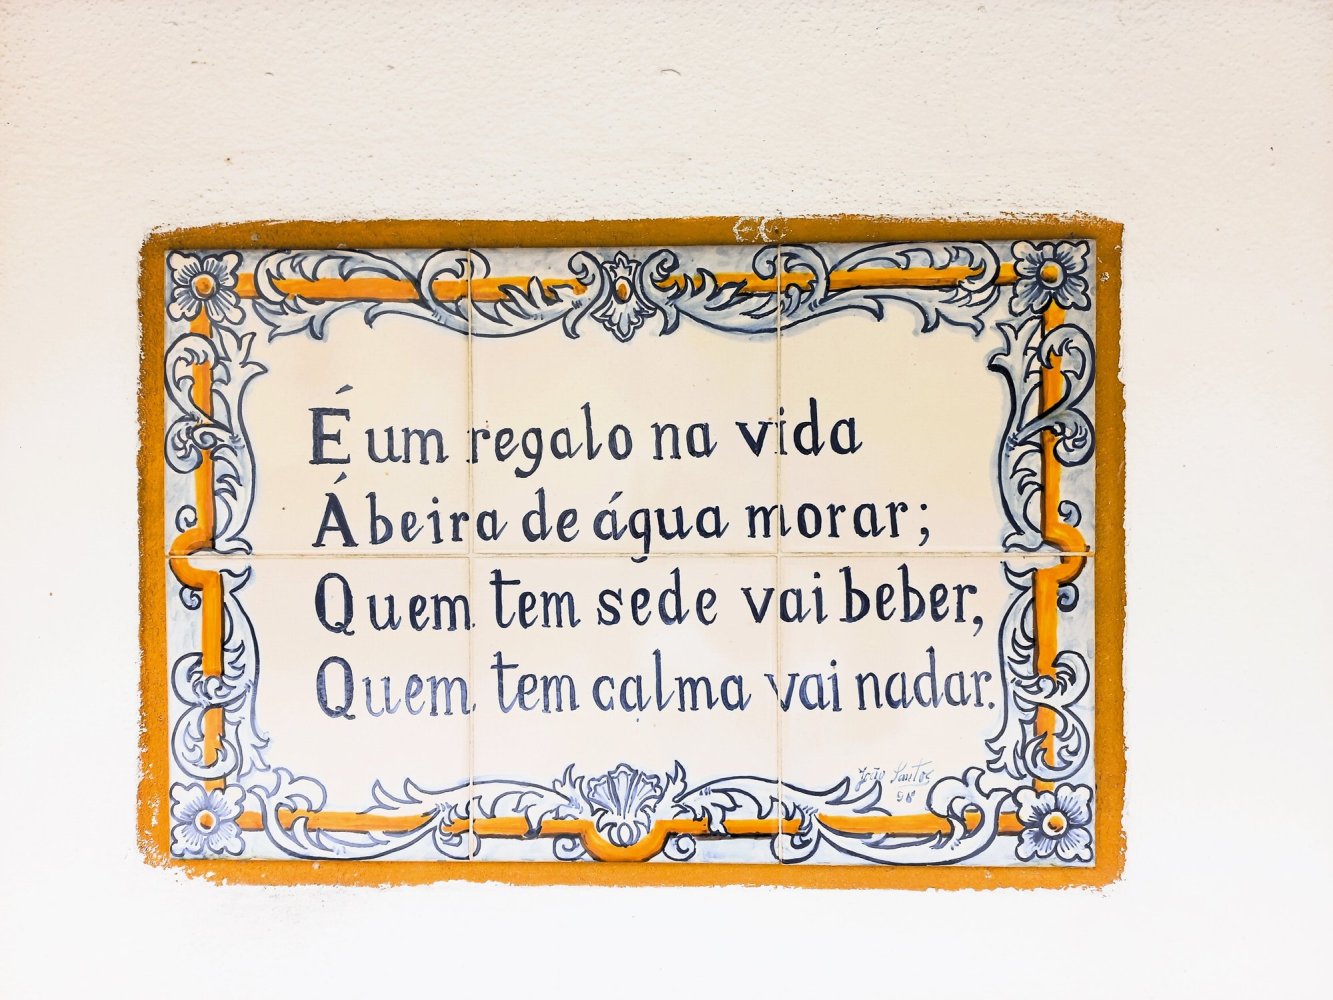 É um regalo na vida
Á beira de água morar;
Quem tem sede vai beber,
Quem tem calma vai nadar.
João Santos
98